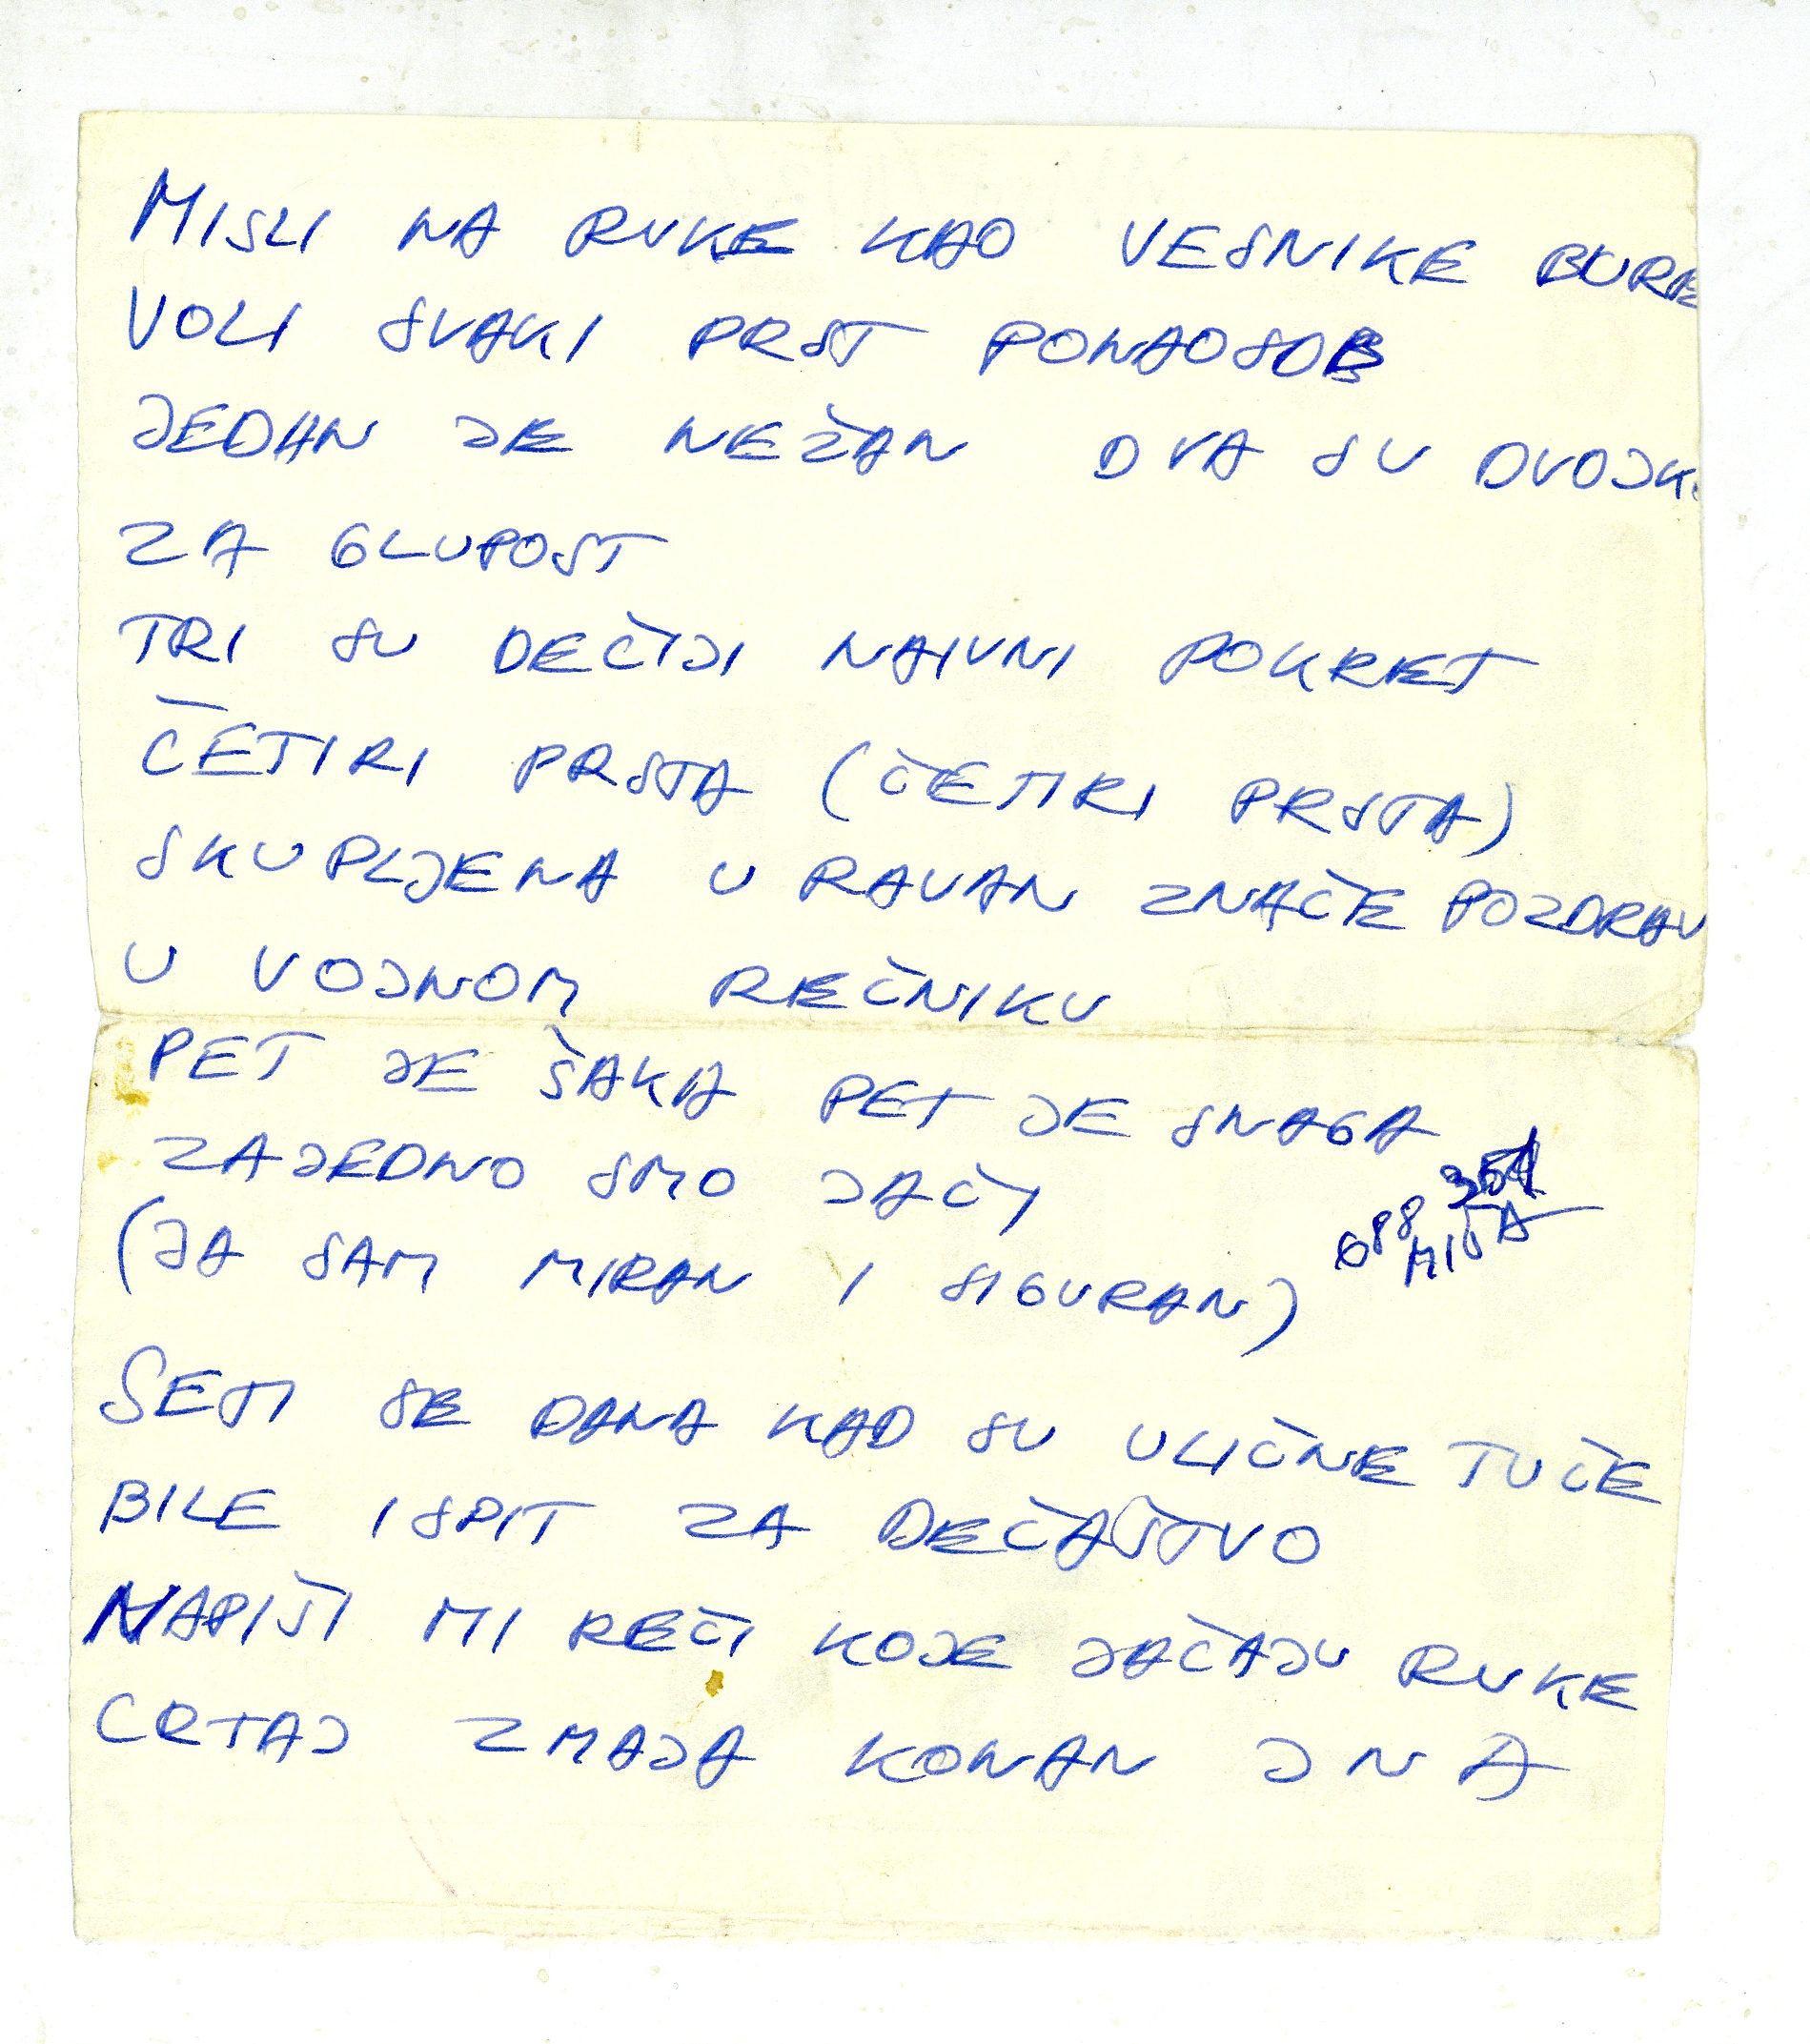 MISLI NA RUKE KAO VESNIKE BURE
VOLI SVAKI PRST PONAOSOB
JEDAN JE NEŽAN DVA SU DVOJK
ZA GLUPOST
TRI SU DEČIJI NAIVNI POKRET
ČETIRI PRSTA (ČETIRI PRSTA)
SKUPLJENA U RAVAN ZNAČE POZDRAV
U VOJNOM REČNIKU
PET JE ŠAKA PET JE SNAGA
ZAJEDNO SMO JAČI
088
(JA SAM MIRAN I SIGURAN)
SETI SE DANA KAD SU ULIČNE TUČE
BILE ISPIT ZA DEČAŠTVO
NAPIŠI MI REČI KOJE JAČAJU RUKE
CRTAJ ZMAJA KONAN JNA